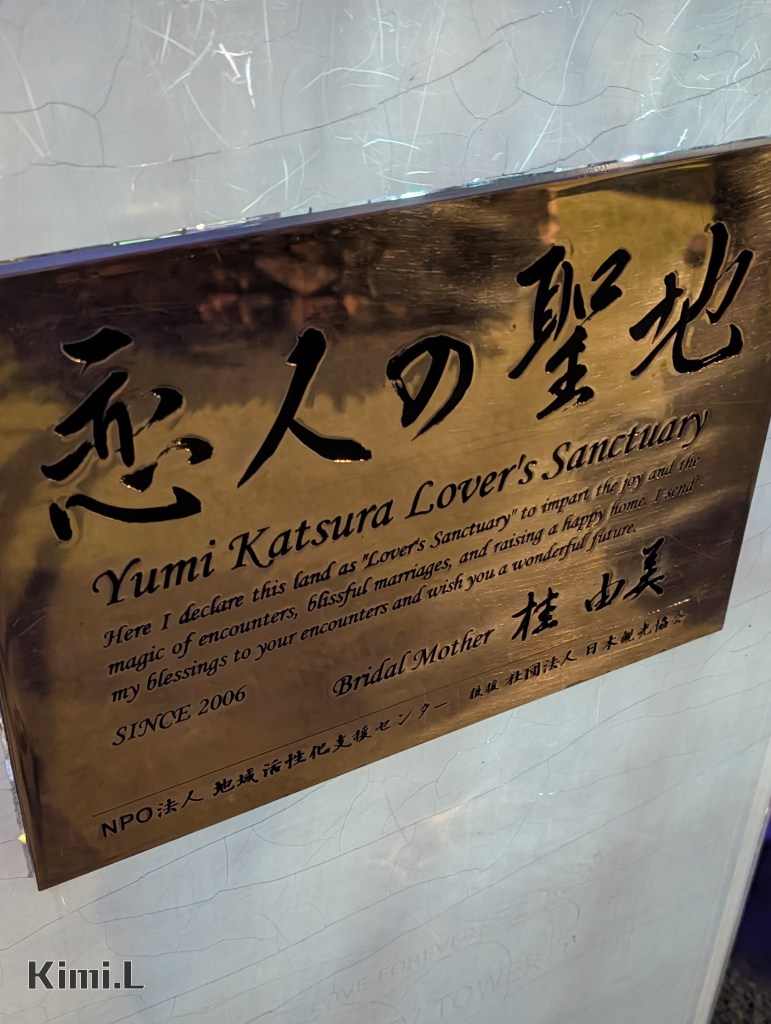 恋人の聖地
Yumi Katsura Lover's Sanctuary
Here I declare this land as "Lover's Sanctuary" to impart the joy and the
magic of encounters, blissful marriages, and raising a happy home. I send
my blessings to your encounters and wish you a wonderful future.
Bridal Mother 桂 由美
SINCE 2006
NPO法人 地域活性化支援センター 後援 社団法人 日本観光協会
LOVE FOREVER
TOWER
Kimi.L